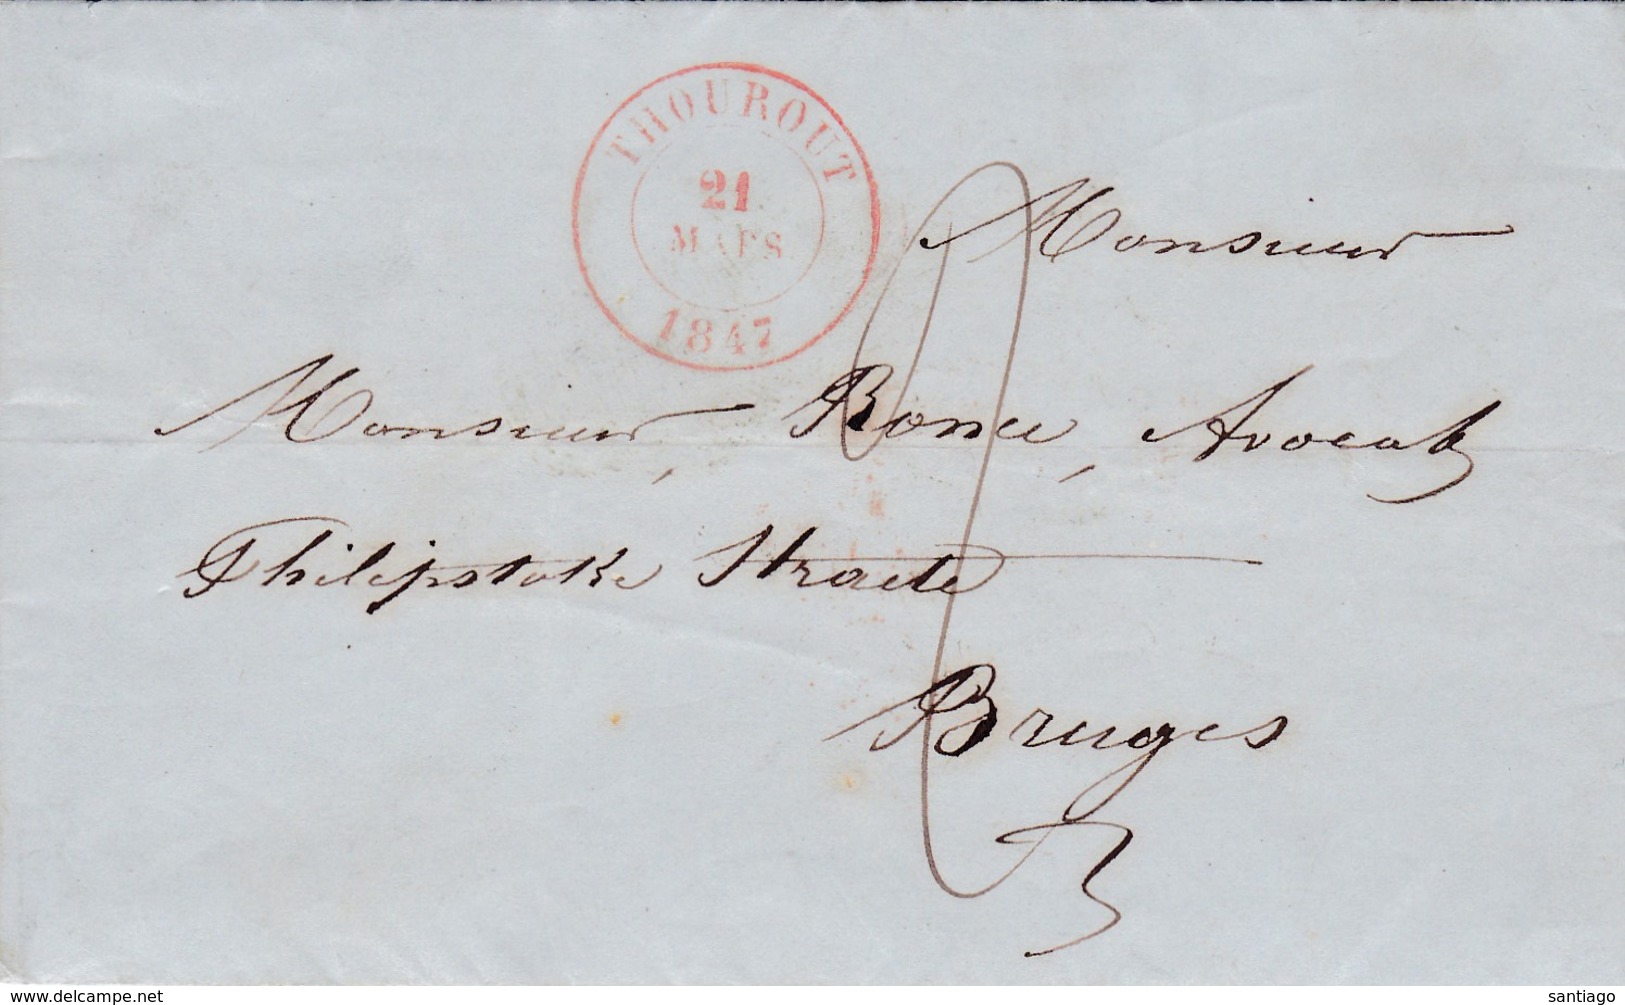 THOUROUT
21
MARS
1847
Monsieur
Monsieur, Ronse, Avocat
Philipstoke Straete
Bruges
www.delcampe.net
santiago